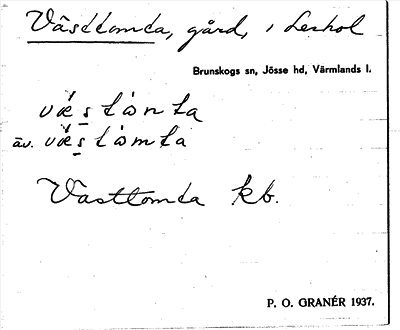 Västtomta, gård, i Lerhol
Brunskogs sn, Jösse hd, Värmlands l.
væ̀stὼnta
äv. væ̀stὼmta
Västtomta kb.
P. O. GRANÉR 1937.